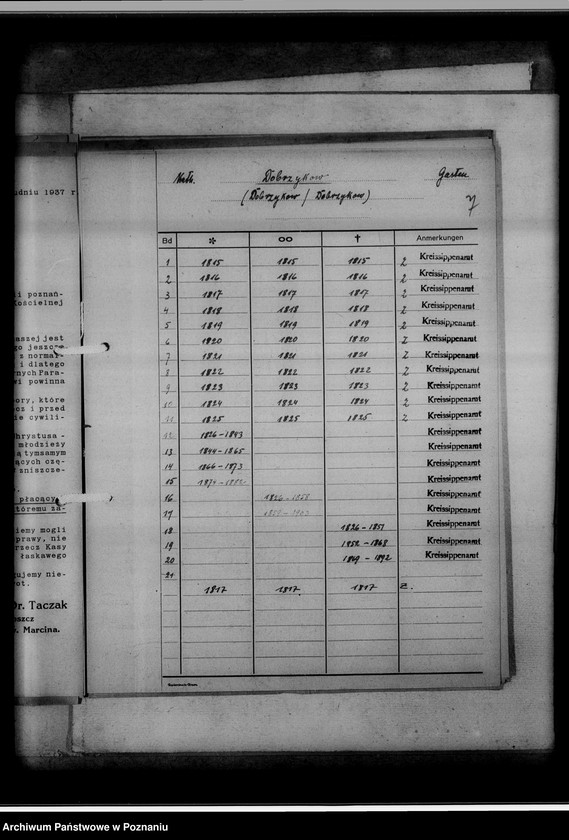 udniu 1937 r
ii poznań-
kościelnej
aszej jest
go jeszcze
z normal-
i dlatego
nych Para-
wi powinna
ory, które
cz i przed
ie cywili-
hrystusa -
młodzieży
ą tymsamym
jących czę-
zniszcze-
płacący
któremu za-
iemy mogli
prawy, nie
rzecz Kasy
łaskawego
kujemy nie-
ot.
Dr. Taczak
oszcz
. Marcina.
Kath. Dobrzykow Gasten
(Dobrzykow / Dobrzykow) 7
Bd * ∞ † Anmerkungen
1 1815 1815 1815 2 Kreissippenamt
2 1816 1816 1816 2 Kreissippenamt
3 1817 1817 1817 2 Kreissippenamt
4 1818 1818 1818 2 Kreissippenamt
5 1819 1819 1819 2 Kreissippenamt
6 1820 1820 1820 2 Kreissippenamt
7 1821 1821 1821 2 Kreissippenamt
8 1822 1822 1822 2 Kreissippenamt
9 1823 1823 1823 2 Kreissippenamt
10 1824 1824 1824 2 Kreissippenamt
11 1825 1825 1825 2 Kreissippenamt
12 1826-1843 Kreissippenamt
13 1844-1865 Kreissippenamt
14 1866-1873 Kreissippenamt
15 1874-1892 Kreissippenamt
16 1826-1858 Kreissippenamt
17 Kreissippenamt
18 1826-1851 Kreissippenamt
19 1852-1868 Kreissippenamt
20 1869-1892 Kreissippenamt
21
1817 1817 1817 2.
Archiwum Państwowe w Poznaniu